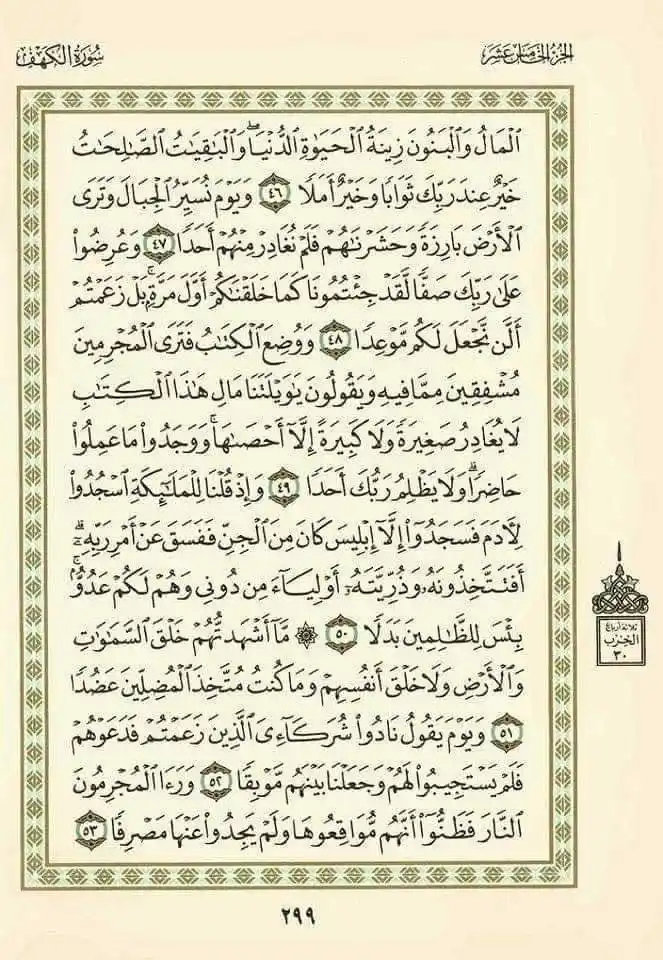 سُورَةُ الكَهْفِ
الجُزْءُ الخَامِسَ عَشَرَ
ٱلْمَالُ وَٱلْبَنُونَ زِينَةُ ٱلْحَيَوٰةِ ٱلدُّنْيَا ۖ وَٱلْبَٰقِيَٰتُ ٱلصَّٰلِحَٰتُ
خَيْرٌ عِندَ رَبِّكَ ثَوَابًا وَخَيْرٌ أَمَلًا ٤٦ وَيَوْمَ نُسَيِّرُ ٱلْجِبَالَ وَتَرَى
ٱلْأَرْضَ بَارِزَةً وَحَشَرْنَٰهُمْ فَلَمْ نُغَادِرْ مِنْهُمْ أَحَدًا ٤٧ وَعُرِضُوا۟
عَلَىٰ رَبِّكَ صَفًّا لَّقَدْ جِئْتُمُونَا كَمَا خَلَقْنَٰكُمْ أَوَّلَ مَرَّةٍۭ ۚ بَلْ زَعَمْتُمْ
أَلَّن نَّجْعَلَ لَكُم مَّوْعِدًا ٤٨ وَوُضِعَ ٱلْكِتَٰبُ فَتَرَى ٱلْمُجْرِمِينَ
مُشْفِقِينَ مِمَّا فِيهِ وَيَقُولُونَ يَٰوَيْلَتَنَا مَالِ هَٰذَا ٱلْكِتَٰبِ
لَا يُغَادِرُ صَغِيرَةً وَلَا كَبِيرَةً إِلَّآ أَحْصَىٰهَا ۚ وَوَجَدُوا۟ مَا عَمِلُوا۟
حَاضِرًا ۗ وَلَا يَظْلِمُ رَبُّكَ أَحَدًا ٤٩ وَإِذْ قُلْنَا لِلْمَلَٰٓئِكَةِ ٱسْجُدُوا۟
لِءَادَمَ فَسَجَدُوٓا۟ إِلَّآ إِبْلِيسَ كَانَ مِنَ ٱلْجِنِّ فَفَسَقَ عَنْ أَمْرِ رَبِّهِۦٓ ۗ
أَفَتَتَّخِذُونَهُۥ وَذُرِّيَّتَهُۥٓ أَوْلِيَآءَ مِن دُونِى وَهُمْ لَكُمْ عَدُوٌّۢ ۚ
بِئْسَ لِلظَّٰلِمِينَ بَدَلًا ٥٠ ۞ مَّآ أَشْهَدتُّهُمْ خَلْقَ ٱلسَّمَٰوَٰتِ
وَٱلْأَرْضِ وَلَا خَلْقَ أَنفُسِهِمْ وَمَا كُنتُ مُتَّخِذَ ٱلْمُضِلِّينَ عَضُدًا
٥١ وَيَوْمَ يَقُولُ نَادُوا۟ شُرَكَآءِىَ ٱلَّذِينَ زَعَمْتُمْ فَدَعَوْهُمْ
فَلَمْ يَسْتَجِيبُوا۟ لَهُمْ وَجَعَلْنَا بَيْنَهُم مَّوْبِقًا ٥٢ وَرَءَا ٱلْمُجْرِمُونَ
ٱلنَّارَ فَظَنُّوٓا۟ أَنَّهُم مُّوَاقِعُوهَا وَلَمْ يَجِدُوا۟ عَنْهَا مَصْرِفًا ٥٣
ثلاثة أرباع
الحزب
٣٠
٢٩٩